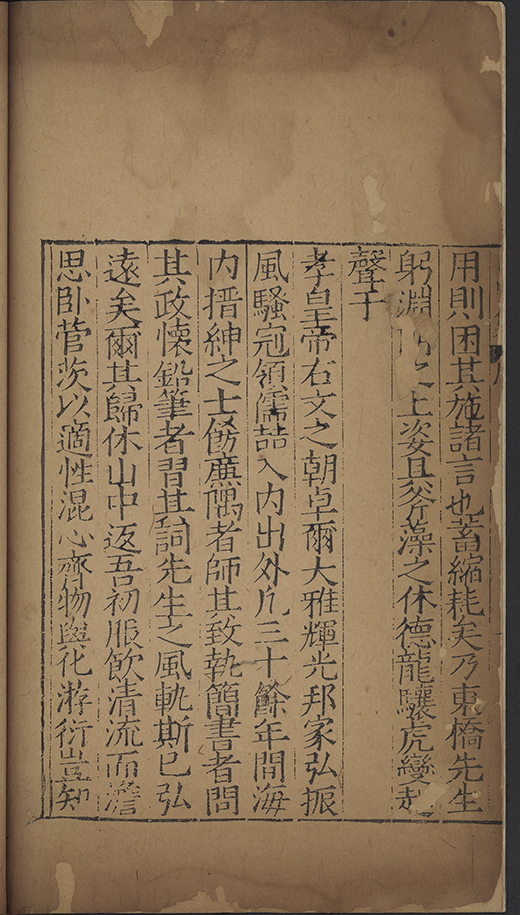 用則困其施諸言也蓄縮耗矣乃東橋先生
躬淵之上姿具斧藻之休德龍驤虎變
聲于
孝皇帝右文之朝卓爾大雅輝光邦家弘振
風騷冠領儒喆入內出外凡三十餘年間海
內搢紳之士飭廉隅者師其致執簡書者問
其政懷鉛筆者習其詞先生之風軌斯已弘
遠矣爾其歸休山中返吾初服飲清流而澹
思卧菅茨以適性混心齊物與化游衍豈知